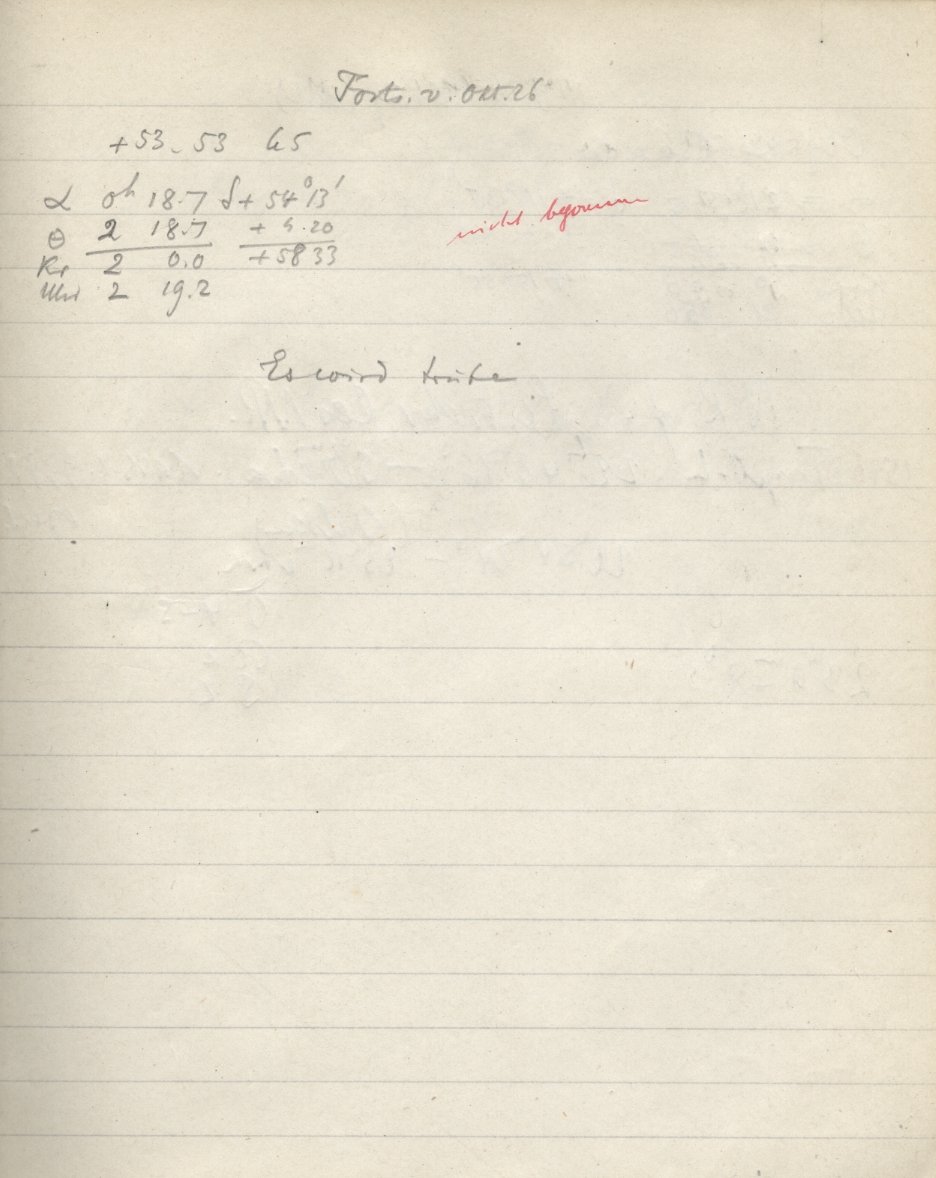 Forts. v. Okt. 26
+53. 53 h5
α 0h 18.7 δ + 54° 13'
nicht begonnen
θ 2 18.7 + 4.20
Kr 2 0.0 +58 33
Uhr 2 19.2
Es wird trübe